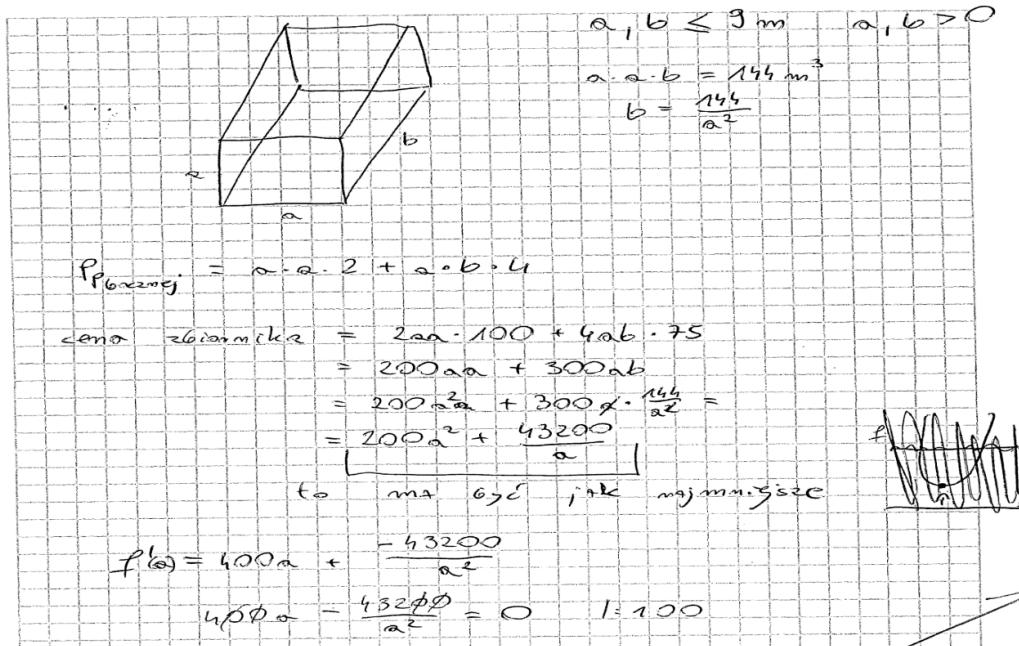 a, b ≤ 9 m a, b > 0
a · a · b = 144 m³
b = 144/a²
a
b
a
Pp bocznej = a · a · 2 + a · b · 4
cena zbiornika = 2aa · 100 + 4ab · 75
= 200aa + 300ab
= 200a² + 300a · 144/a² =
= 200a² + 43200/a
to ma być jak najmniejsze
f'(a) = 400a + -43200/a²
400a - 43200/a² = 0 /:100